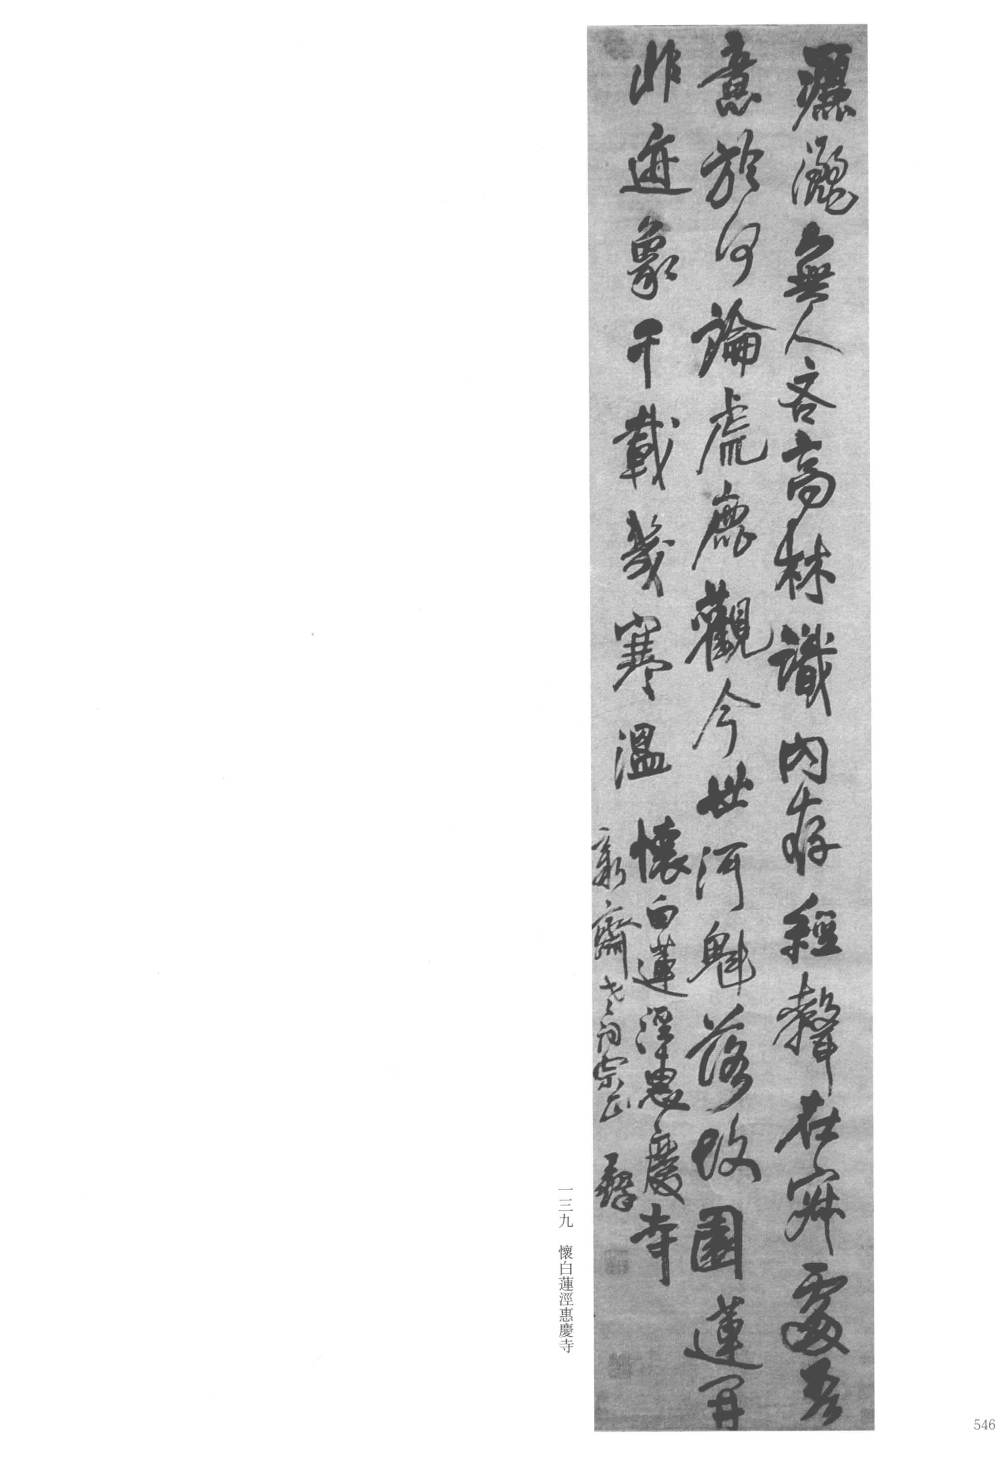 無人吝高林識內存經聲在寂處吾
意於何論虎鹿觀今世河魁落故園蓮開
非迹象千載幾寒溫 懷白蓮涇惠慶寺
新齋老詞宗正 王鐸
一三九 懷白蓮涇惠慶寺
546